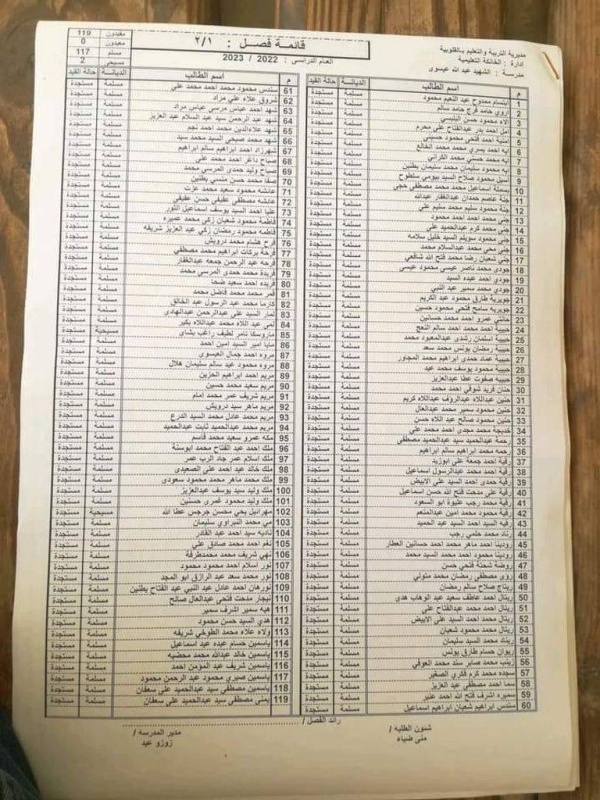 مديرية التربية والتعليم بالقليوبية
ادارة : الخانكة التعليمية
مدرسة : الشهيد عبد الله عيسوى
قائمة فصل : ٢/١
العام الدراسى : 2022 / 2023
مقيدون 119
معيدون 0
مسلم 117
مسيحى 2
م اسم الطالب الديانة حالة القيد
1 ابتسام ممدوح عبد النعيم محمود مسلمة مستجدة
2 اروى حامد فرج حامد سالم مسلمة مستجدة
3 الاء محمود حسن البلبيسى مسلمة مستجدة
4 امل احمد بدر عبدالفتاح على محرم مسلمة مستجدة
5 امنية احمد فتحى محمود حسينى مسلمة مستجدة
6 ايه احمد يسرى محمد محمد مسلمة مستجدة
7 ايه محمد حسنى محمد مسلمة مستجدة
8 ايه محمود سليمان محمد سليمان مسلمة مستجدة
9 محمود صلاح السيد بيومى مسلمة مستجدة
10 بسملة اسماعيل محمد محمد مصطفى حجى مسلمة مستجدة
11 جنة عاصم حمدان عبدالغفار عبدالله مسلمة مستجدة
12 جنة محمود سليم محمد سليم على مسلمة مستجدة
13 جنى محمد احمد احمد محمود مسلمة مستجدة
14 جنى محمد كرم عبدالحميد على مسلمة مستجدة
15 جنى محمود سويلم السيد خليل سلامه مسلمة مستجدة
16 جنى محى محمد عبدالسلام محمد مسلمة مستجدة
17 جنى شعبان رضا محمد فتح الله شافعى مسلمة مستجدة
18 جودى محمد ناصر عيسى محمود عيسى مسلمة مستجدة
19 جودى احمد عبده السيد مسلمة مستجدة
20 جودى محمد سمير عبد النبى مسلمة مستجدة
21 جويرية طارق محمود عبد الكريم مسلمة مستجدة
22 جويرية سامح فتحى محمود حسين مسلمة مستجدة
23 عمرو احمد محمد حسانين مسلمة مستجدة
24 حبيبة احمد محمد احمد سالم مسلمة مستجدة
25 حبيبة اسلمان رشدى عبدالمعبود محمد مسلمة مستجدة
26 حبيبة رمضان يونس محمد سعد مسلمة مستجدة
27 حبيبة عماد حمدى ابراهيم محمد المجاور مسلمة مستجدة
28 حبيبة محمود يوسف محمد عيد مسلمة مستجدة
29 حبيبة صفوت عطا عبدالعزيز مسلمة مستجدة
30 حنان فريد شوقى احمد محمد مسلمة مستجدة
31 حنين عبداللاه عبدالرؤف عبداللاه كريم مسلمة مستجدة
32 حنين محمود سمير محمد عبدالعال مسلمة مستجدة
33 حنين محمود صالح عبد اللاه حسن مسلمة مستجدة
34 خديجة محمد مجدى احمد محمد على مسلمة مستجدة
35 رحمة عبدالحميد سيد عبدالحميد مصطفى مسلمة مستجدة
36 رحمه محمد ابراهيم سالم ابراهيم مسلمة مستجدة
37 رقية احمد جمعة على ابوزيد مسلمة مستجدة
38 رقية احمد محمد عبدالرسول اسماعيل مسلمة مستجدة
39 رقية حمدى احمد السيد على الابيض مسلمة مستجدة
40 رقية على مدحت فتح الله حسن اسماعيل مسلمة مستجدة
41 رقية محمد احمد رجب ابو السعود مسلمة مستجدة
42 رقية محمود محمد امين عبدالمنعم مسلمة مستجدة
43 رقيه السيد احمد السيد عبد الحميد مسلمة مستجدة
44 رناد محمد حلمى رجب مسلمة مستجدة
45 رودينا احمد ماهر محمد احمد حسانين العطار مسلمة مستجدة
46 رودينا محمود احمد محمد السيد محمد مسلمة مستجدة
47 روضة شحتة فتحى حسن مسلمة مستجدة
48 رؤى مصطفى رمضان محمد متولى مسلمة مستجدة
49 ريتاج صلاح سالم رمضان مسلمة مستجدة
50 ريتال احمد عاطف سعيد عبد الوهاب هدى مسلمة مستجدة
51 ريتال احمد محمد عبدالفتاح على مسلمة مستجدة
52 ريتال محمد احمد السيد على الابيض مسلمة مستجدة
53 ريتال محمد محمود شعبان مسلمة مستجدة
54 رينده محمد السيد سليمان مسلمة مستجدة
55 ريوان حسام طارق يونس مسلمة مستجدة
56 زينب محمد صابر سند محمد العوفى مسلمة مستجدة
57 سجده محمد كرم فكرى الصغير مسلمة مستجدة
58 سما احمد مصطفى عبد العزيز مسلمة مستجدة
59 سميره اشرف فتح الله احمد عنبر مسلمة مستجدة
60 سندس ابراهيم شعبان ابراهيم اسماعيل مسلمة مستجدة
م اسم الطالب الديانة حالة القيد
61 سندس محمود محمد احمد محمد على مسلمة مستجدة
62 شروق علاء على مراد مسلمة مستجدة
63 شهد احمد عباس مرسى عباس مراد مسلمة مستجدة
64 شهد عبد الرحمن سيد عبد السلام عبد العزيز مسلمة مستجدة
65 شهد علاءالدين محمد احمد نجم مسلمة مستجدة
66 شهد محمد صبحى السيد محمد سيد مسلمة مستجدة
67 شهرزاد احمد ابراهيم سالم ابراهيم مسلمة مستجدة
68 صباح داغر احمد محمد على مسلمة مستجدة
69 صباح وليد حمدى المرسى محمد مسلمة مستجدة
70 صفا محمد حسن منسى مسلمة مستجدة
71 عائشه محمود سعيد محمد عزت مسلمة مستجدة
72 عائشه مصطفى عفيفى حسن عفيفى مسلمة مستجدة
73 عليا احمد السيد يوسف اسماعيل مسلمة مستجدة
74 فاطمة محمود شعبان زكى محمد عميره مسلمة مستجدة
75 فاطمة محمود رمضان زكى عبد العزيز شريفه مسلمة مستجدة
76 فرح هشام محمد درويش مسلمة مستجدة
77 فرحة بركات ابراهيم محمد مصطفى مسلمة مستجدة
78 فرحه عبد الرحمن جمعه عبدالغفار مسلمة مستجدة
79 فريدة محمد حمدى المرسى محمد مسلمة مستجدة
80 فريده احمد سعيد مسلمة مستجدة
81 قمر محمد محمد فاضل محمد مسلمة مستجدة
82 كارما محمد عبد الرسول عبد الخالق مسلمة مستجدة
83 السيد على عبدالرحمن عبدالهادى مسلمة مستجدة
84 لمى عبد اللاه محمد عبداللاه بكير مسلمة مستجدة
85 ماروسكا تامر لطيف راغب بشاى مسيحية مستجدة
86 مايا امير السيد امين احمد مسلمة مستجدة
87 مروه احمد جمال العيسوى مسلمة مستجدة
88 مروة محمود عيد سالم سليمان هلال مسلمة مستجدة
89 مريم احمد ابراهيم الحزين مسلمة مستجدة
90 مريم سعيد محمد حسين مسلمة مستجدة
91 مريم شريف عمر محمد امام مسلمة مستجدة
92 مريم ماهر سيد درويش مسلمة مستجدة
93 مريم محمد عادل محمد السيد مسلمة مستجدة
94 مريم محمد عبدالحميد ثابت عبدالحميد مسلمة مستجدة
95 مكه عمرو سعيد محمد قاسم مسلمة مستجدة
96 ملك احمد عبد الفتاح محمد ابوسنة مسلمة مستجدة
97 ملك اسلام عمر جاد الرب عمر مسلمة مستجدة
98 ملك خالد عيد احمد على الصعيدى مسلمة مستجدة
99 ملك محمد ماهر محمد محمود سعودى مسلمة مستجدة
100 ملك وليد سيد يوسف عبدالعزيز مسلمة مستجدة
101 ملك وليد محمود غمرى حسنين مسلمة مستجدة
102 مهرائيل يحى محسن جرجس عطا الله مسيحية مستجدة
103 مى محمد النبراوى سليمان مسلمة مستجدة
104 نادية سيد احمد عبد القادر مسلمة مستجدة
105 نغم احمد محمد صادق على مسلمة مستجدة
106 نهى شريف محمد محمدطرفة مسلمة مستجدة
107 نور اسلام احمد محمود محمود مسلمة مستجدة
108 نور محمد سعد عبد الرازق ابو المجد مسلمة مستجدة
109 نورهان احمد عادل عبد النبى عبد الفتاح مسلمة مستجدة
110 نيجار مدحت فتحى عبدالعال صالح مسلمة مستجدة
111 هبه سمير اشرف سمير مسلمة مستجدة
112 هدى السيد حسن محمود مسلمة مستجدة
113 ولاء علاء محمد الطوخى شريفه مسلمة مستجدة
114 ياسمين حسام عبده عبد اسماعيل مسلمة مستجدة
115 ياسمين خالد عبدالله محمد مسلمة مستجدة
116 ياسمين شريف عبد المؤمن احمد مسلمة مستجدة
117 ياسمين صبرى محمود عبد الرحمن محمود مسلمة مستجدة
118 ياسمين مصطفى سيد عبدالحميد على سعفان مسلمة مستجدة
119 يمنى مصطفى سيد عبدالحميد على سعفان مسلمة مستجدة
شئون الطلبه / منى ضياء
رائد الفصل /
مدير المدرسه / زوزو عيد